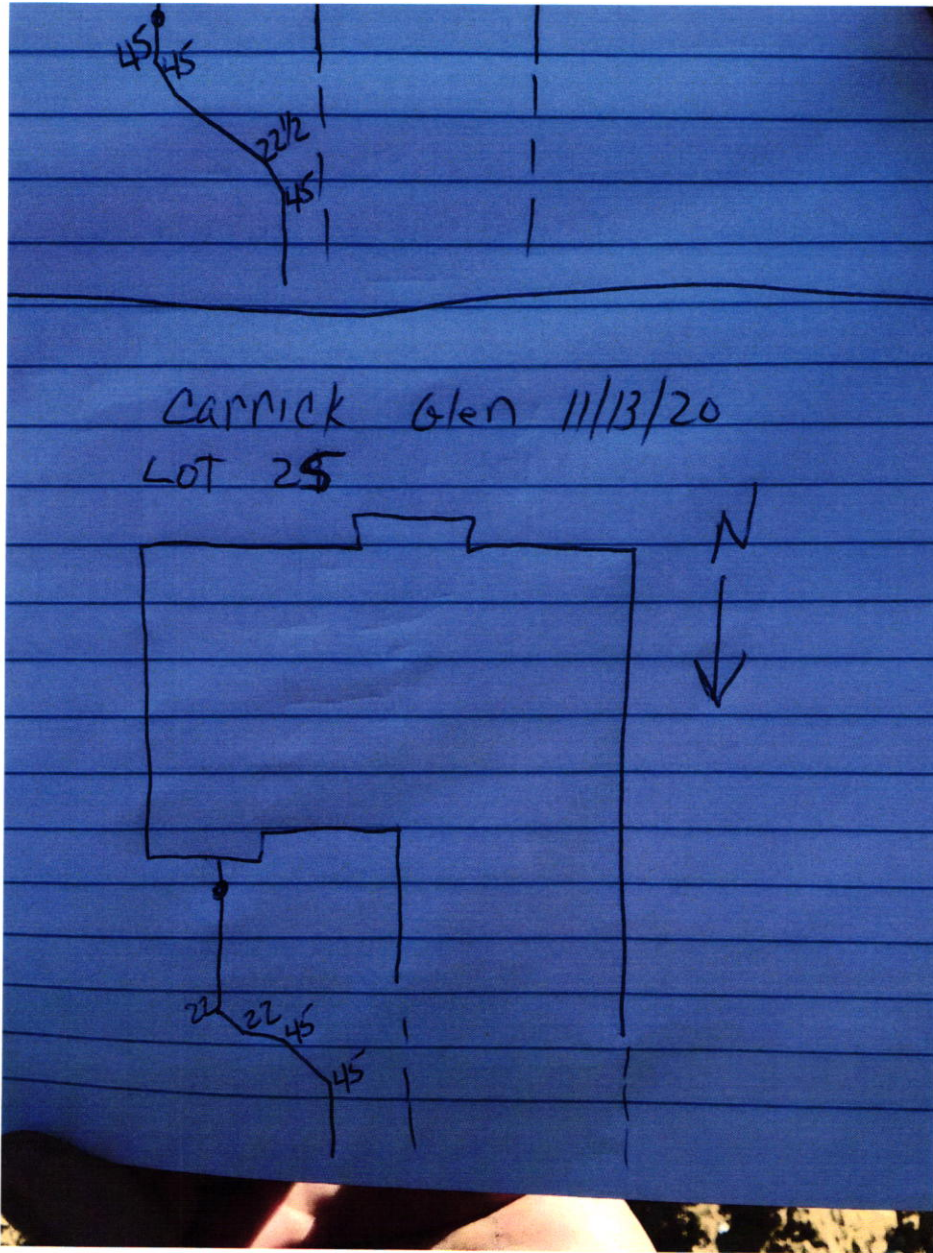 45 45
22 1/2
45
Carrick Glen 11/13/20
LOT 25
N
22 22 45
45